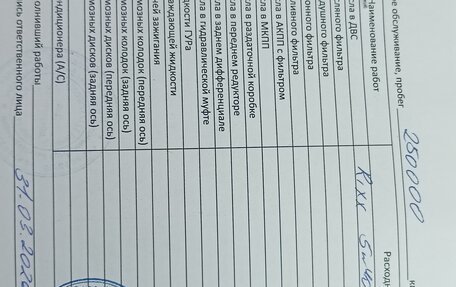 ое обслуживание, пробег 250000
Наименование работ Расходн
сла в ДВС Rixx 5w40
сляного фильтра
здушного фильтра
лонного фильтра
пливного фильтра
сла в АКПП с фильтром
сла в МКПП
сла в раздаточной коробке
сла в переднем редукторе
сла в заднем дифференциале
сла в гидравлической муфте
дкости ГУРа
аждающей жидкости
чей зажигания
мозных колодок (передняя ось)
мозных колодок (задняя ось)
мозных дисков (передняя ось)
мозных дисков (задняя ось)
ндиционера (A/C)
олнивший работы
ись ответственного лица 31.03.202